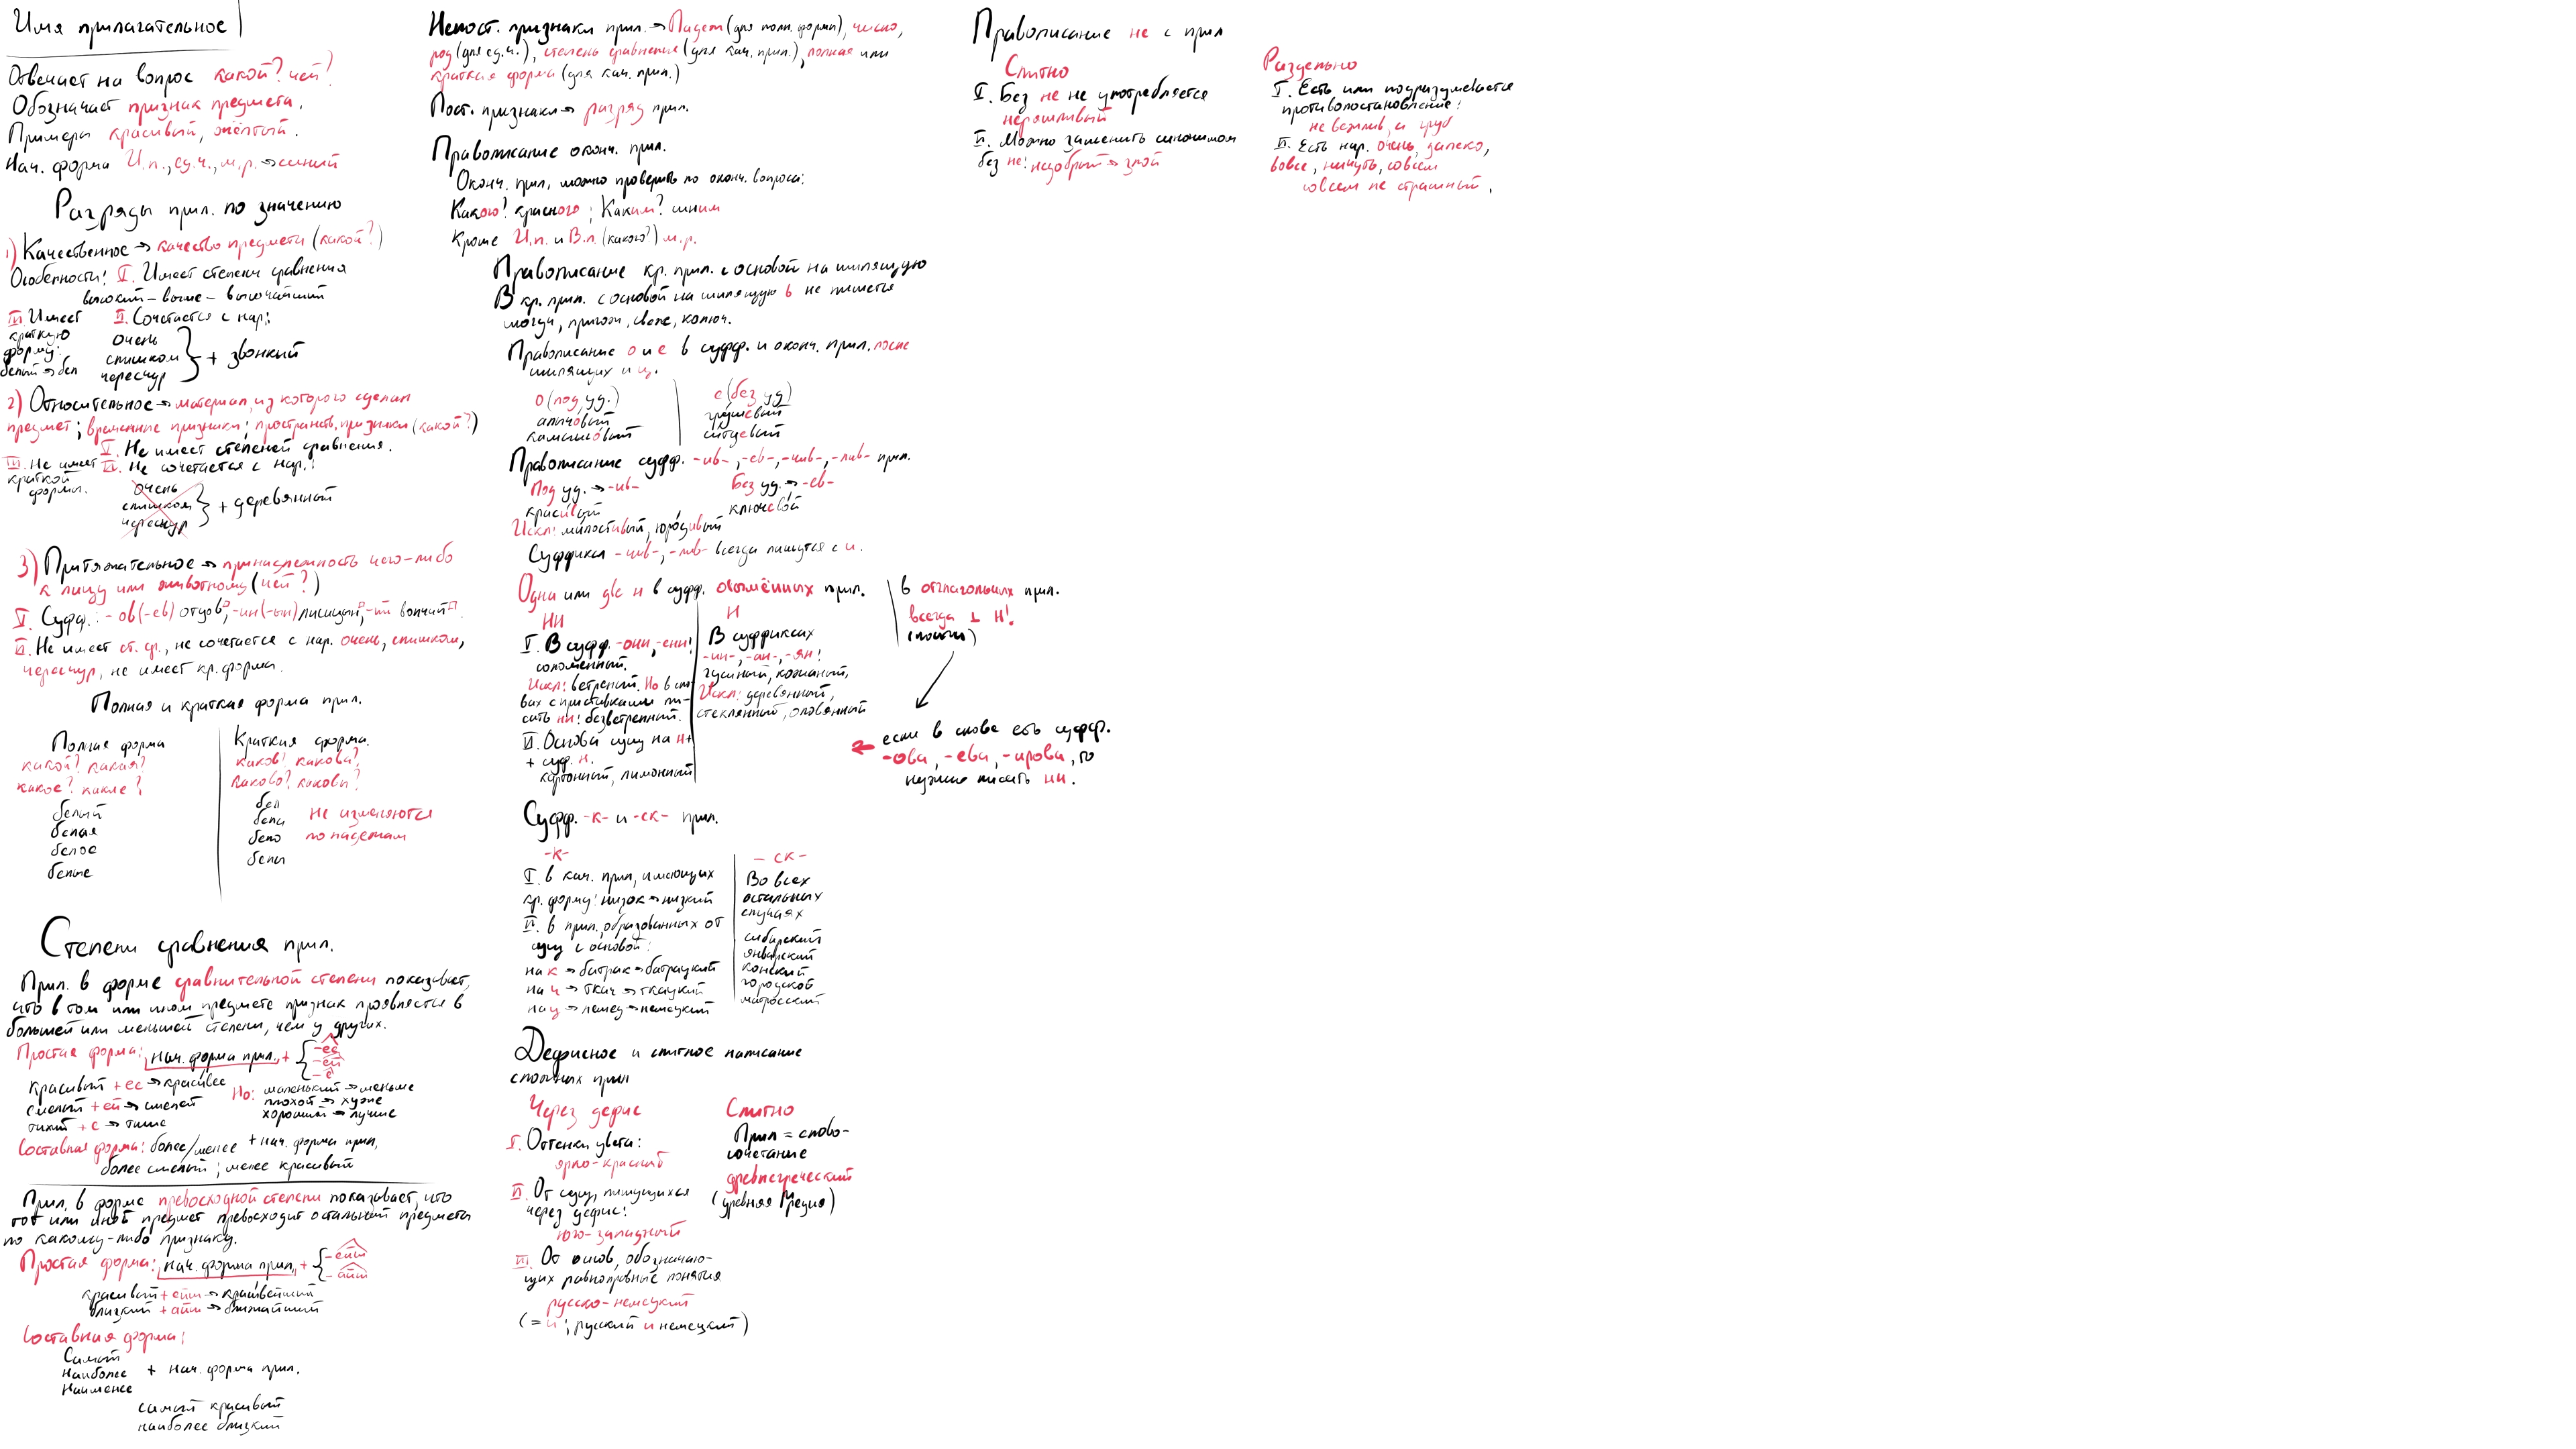 Имя прилагательное
Отвечает на вопрос какой? чей?
Обозначает признак предмета.
Примеры красивый, жёлтый.
Нач. форма И.п., ед.ч., м.р. → синий
Разряды прил. по значению
1) Качественное → качество предмета (какой?)
Особенности: I. Имеет степени сравнения
высокий – выше – высочайший
II. Сочетается с нар.:
очень
слишком
чересчур
+ звонкий
III. Имеет
краткую
форму:
белый → бел
2) Относительное → материал, из которого сделан
предмет; временные признаки; пространств. признаки (какой?)
I. Не имеет степеней сравнения.
II. Не сочетается с нар.:
очень
слишком
чересчур
+ деревянный
III. Не имеет
краткой
формы.
3) Притяжательное → принадлежность чего-либо
к лицу или животному (чей?)
I. Суф.: -ов(-ев) отцов, -ин(-ын) лисицын, -ий волчий
II. Не имеет ст. ср., не сочетается с нар. очень, слишком,
чересчур, не имеет кр. форма.
Полная и краткая форма прил.
Полная форма
какой? какая?
какое? какие?
белый
белая
белое
белые
Краткая форма.
каков? какова?
каково? каковы?
бел
бела
бело
белы
не изменяются
по падежам
Степени сравнения прил.
Прил. в форме сравнительной степени показывает,
что в том или ином предмете признак проявляется в
большей или меньшей степени, чем у других.
Простая форма: нач. форма прил. + -ее
-ей
-е
красивый + ее → красивее
смелый + ей → смелей
тихий + е → тише
Но: маленький → меньше
плохой → хуже
хороший → лучше
Составная форма: более/менее + нач. форма прил.
более смелый; менее красивый
Прил. в форме превосходной степени показывает, что
тот или иной предмет превосходит остальный предмета
по какому-либо признаку.
Простая форма: нач. форма прил. + -ейш
-айш
красивый + ейш → красивейший
близкий + айш → ближайший
Составная форма:
Самый
Наиболее
Наименее
+ нач. форма прил.
самый красивый
наиболее близкий
Непост. признаки прил. → Падеж (для полн. формы), число,
род (для ед.ч.), степень сравнения (для кач. прил.), полная или
краткая форма (для кач. прил.)
Пост. признаки → разряд прил.
Правописание оконч. прил.
Оконч. прил. можно проверить по оконч. вопроса:
Какого? красного; Каким? синим
Кроме И.п. и В.п. (какого?) м.р.
Правописание кр. прил. с основой на шипящую
В кр. прил. с основой на шипящую ь не пишется
могуч, пригож, свеж, колюч.
Правописание о и е в суфф. и оконч. прил. после
шипящих и ц.
о (под уд.)
алычовый
камышовый
е (без уд)
грушевый
ситцевый
Правописание суфф. -ив-, -ев-, -чив-, -лив- прил.
Под уд. → -ив-
красивый
Без уд. → -ев-
ключевой
Искл: милостивый, юродивый
Суффикса -чив-, -лив- всегда пишутся с и.
Одни или две н в суфф. отымённых прил.
НН
I. В суфф. -онн, -енн:
соломенный.
Искл: ветреный. Но в сло-
вах с приставками пи-
сать нн: безветренный.
II. Основа сущ на н+
+ суф. н.
картонный, лимонный
Н
В суффиксах
-ин-, -ан-, -ян:
гусиный, кожаный,
Искл: деревянный,
стеклянный, оловянный
в отглагольных прил.
всегда 1 Н!
(почти)
если в слове есть суфф.
-ова, -ева, -ирова, то
нужно писать нн.
Суфф. -к- и -ск- прил.
-к-
I. в кач. прил, имеющих
кр. форму: низок → низкий
II. в прил., образованных от
сущ с основой:
на к → батрак → батрацкий
на ч → ткач → ткацкий
на ц → немец → немецкий
-ск-
Во всех
остальных
случаях
сибирский
январский
конский
городской
матросский
Дефисное и слитное написание
сложных прил
Через дефис
I. Оттенки цвета:
ярко-красный
II. От сущ, пишущихся
через дефис:
юго-западный
III. От основ, обозначаю-
щих равноправные понятия
русско-немецкий
(= и; русский и немецкий)
Слитно
Прил = слово-
сочетание
древнегреческий
(древняя Греция)
Правописание не с прил
Слитно
I. Без не не употребляется
неряшливый
II. Можно заменить синонимом
без не: недобрый → злой
Раздельно
I. Есть или подразумевается
противопостановление:
не вежлив, а груб
II. Есть нар. очень, далеко,
вовсе, ничуть, совсем
совсем не страшный.